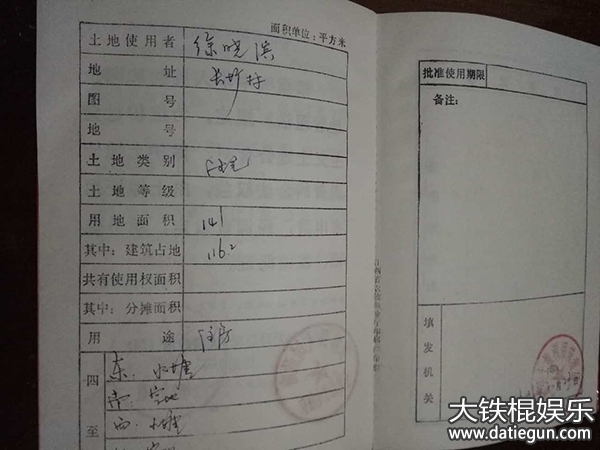 面积单位：平方米
土地使用者 徐晓滨
地址
图号
地号
土地类别 住宅
土地等级
用地面积 141
其中：建筑占地 116²
共有使用权面积
其中：分摊面积
用途 住房
四至
东：水塘
南：空地
西：水塘
批准使用期限
备注：
填发机关
大铁棍娱乐
www.datiegun.com